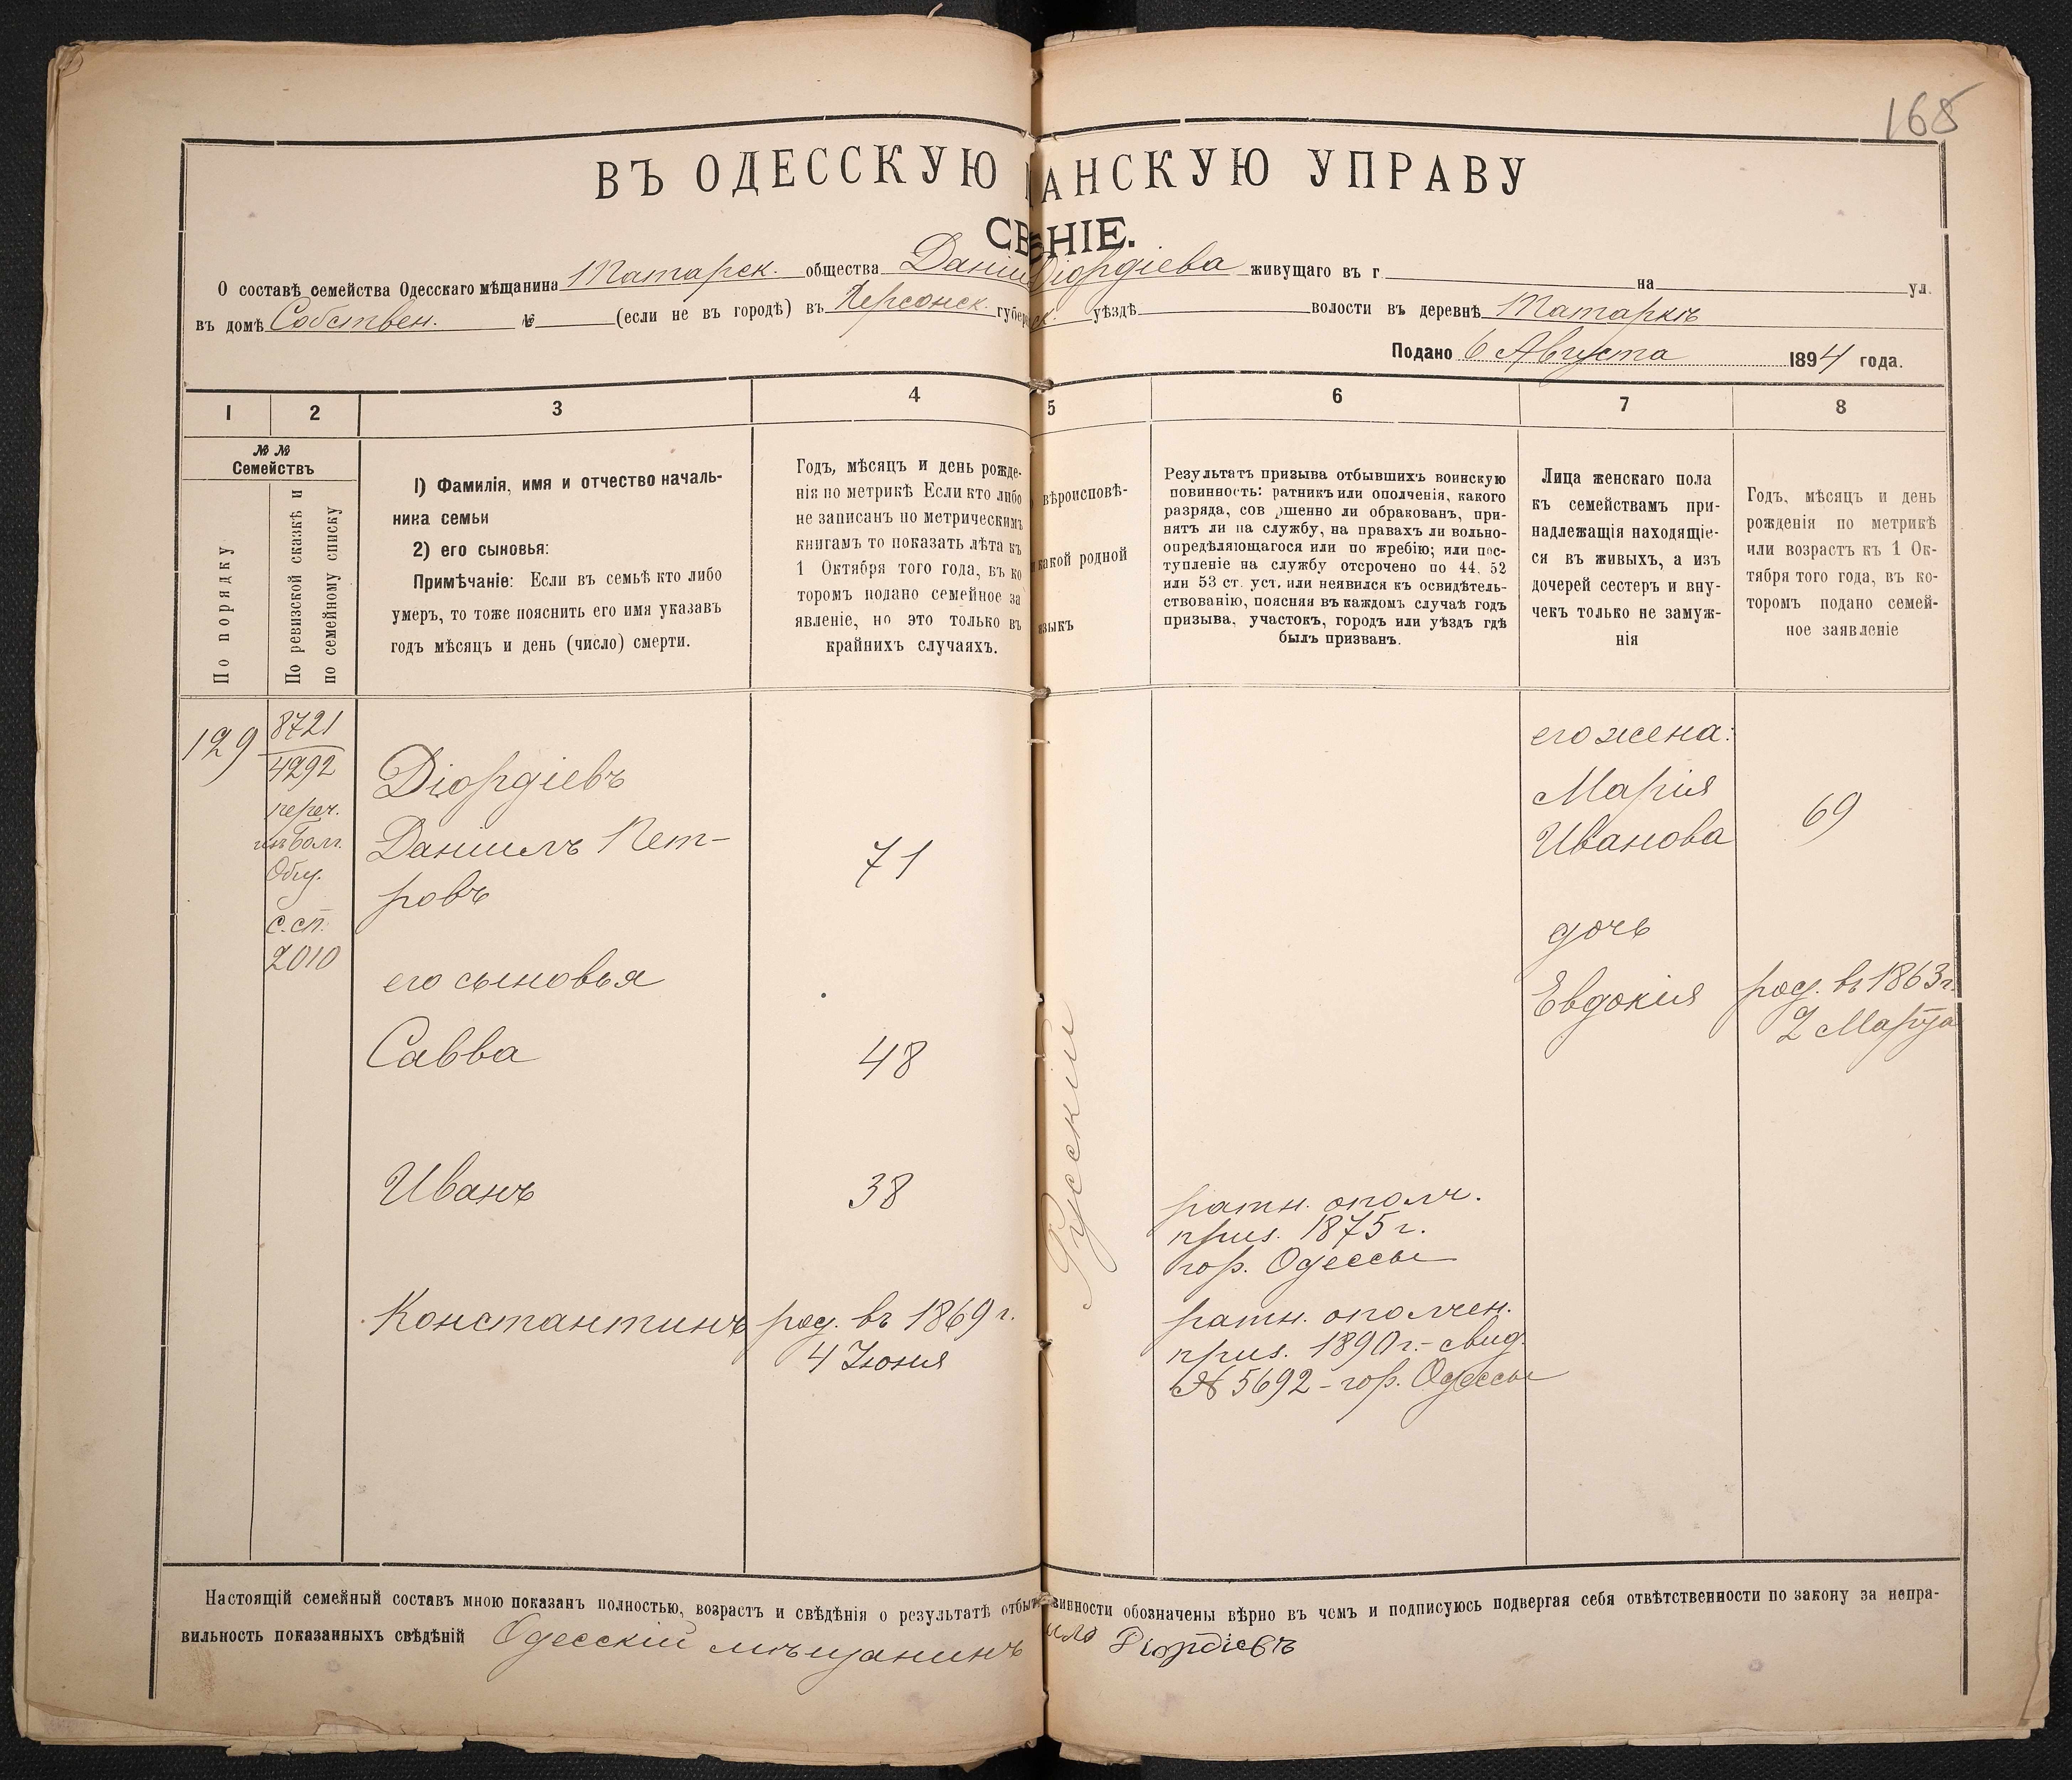 168
ВЪ ОДЕССКУЮ АНСКУЮ УПРАВУ
СВ НІЕ.
О составѣ семейства Одесскаго мѣщанина Татарск. общества Даніи Діордіева живущаго въ г на ул.
въ домѣ Собствен. № (если не въ городѣ) въ Херсонск. губер ск. уѣздѣ волости въ деревнѣ Татаркѣ
Подано 6 Августа 1894 года.
1 2 3 4 5 6 7 8
№ №
Семействъ
По порядку
По ревизской сказкѣ и
по семейному списку
1) Фамилія, имя и отчество началь-
ника семьи
2) его сыновья:
Примѣчаніе: Если въ семьѣ кто либо
умеръ, то тоже пояснить его имя указавъ
годъ мѣсяцъ и день (число) смерти.
Годъ, мѣсяцъ и день рожде-
нія по метрикѣ Если кто либо
не записанъ по метрическимъ
книгамъ то показать лѣта къ
1 Октября того года, въ ко
торомъ подано семейное за
явленіе, но это только въ
крайнихъ случаяхъ.
вѣроисповѣ-
какой родной
языкъ
Результатъ призыва отбывшихъ воинскую
повинность: ратникъ или ополченія, какого
разряда, сов ршенно ли обракованъ, при-
нятъ ли на службу, на правахъ ли вольно-
опредѣляющагося или по жребію; или пос-
тупленіе на службу отсрочено по 44. 52
или 53 ст. уст. или неявился къ освидѣтель-
ствованію, поясняя въ каждомъ случаѣ годъ
призыва, участокъ, городъ или уѣздъ гдѣ
былъ призванъ.
Лица женскаго пола
къ семействамъ при-
надлежащія находящіе-
ся въ живыхъ, а изъ
дочерей сестеръ и вну-
чекъ только не замуж-
нія
Годъ, мѣсяцъ и день
рожденія по метрикѣ
или возрастъ къ 1 Ок-
тября того года, въ ко-
торомъ подано семей-
ное заявленіе
129
8721
4292
переч.
изъ болг.
Общ.
с. сп.
2010
Діордіевъ
Даніилъ Пет-
ровъ
71
его сыновья
Савва
48
Иванъ
38
Константинъ
род. въ 1869 г.
4 Іюня
Русскій
ратн. ополч.
приз. 1875 г.
гор. Одессы
ратн. ополчен.
приз. 1890 г. - свид.
№ 5692 - гор. Одессы
его жена:
Марія
Иванова
69
дочь
Евдокія
род. въ 1863 г.
2 Марта
Настоящій семейный составъ мною показанъ полностью, возрастъ и свѣдѣнія о результатѣ отбыт винности обозначены вѣрно въ чемъ и подписуюсь подвергая себя отвѣтственности по закону за непра-
вильность показанныхъ свѣдѣній Одесскій мѣщанинъ ило Діордіевъ